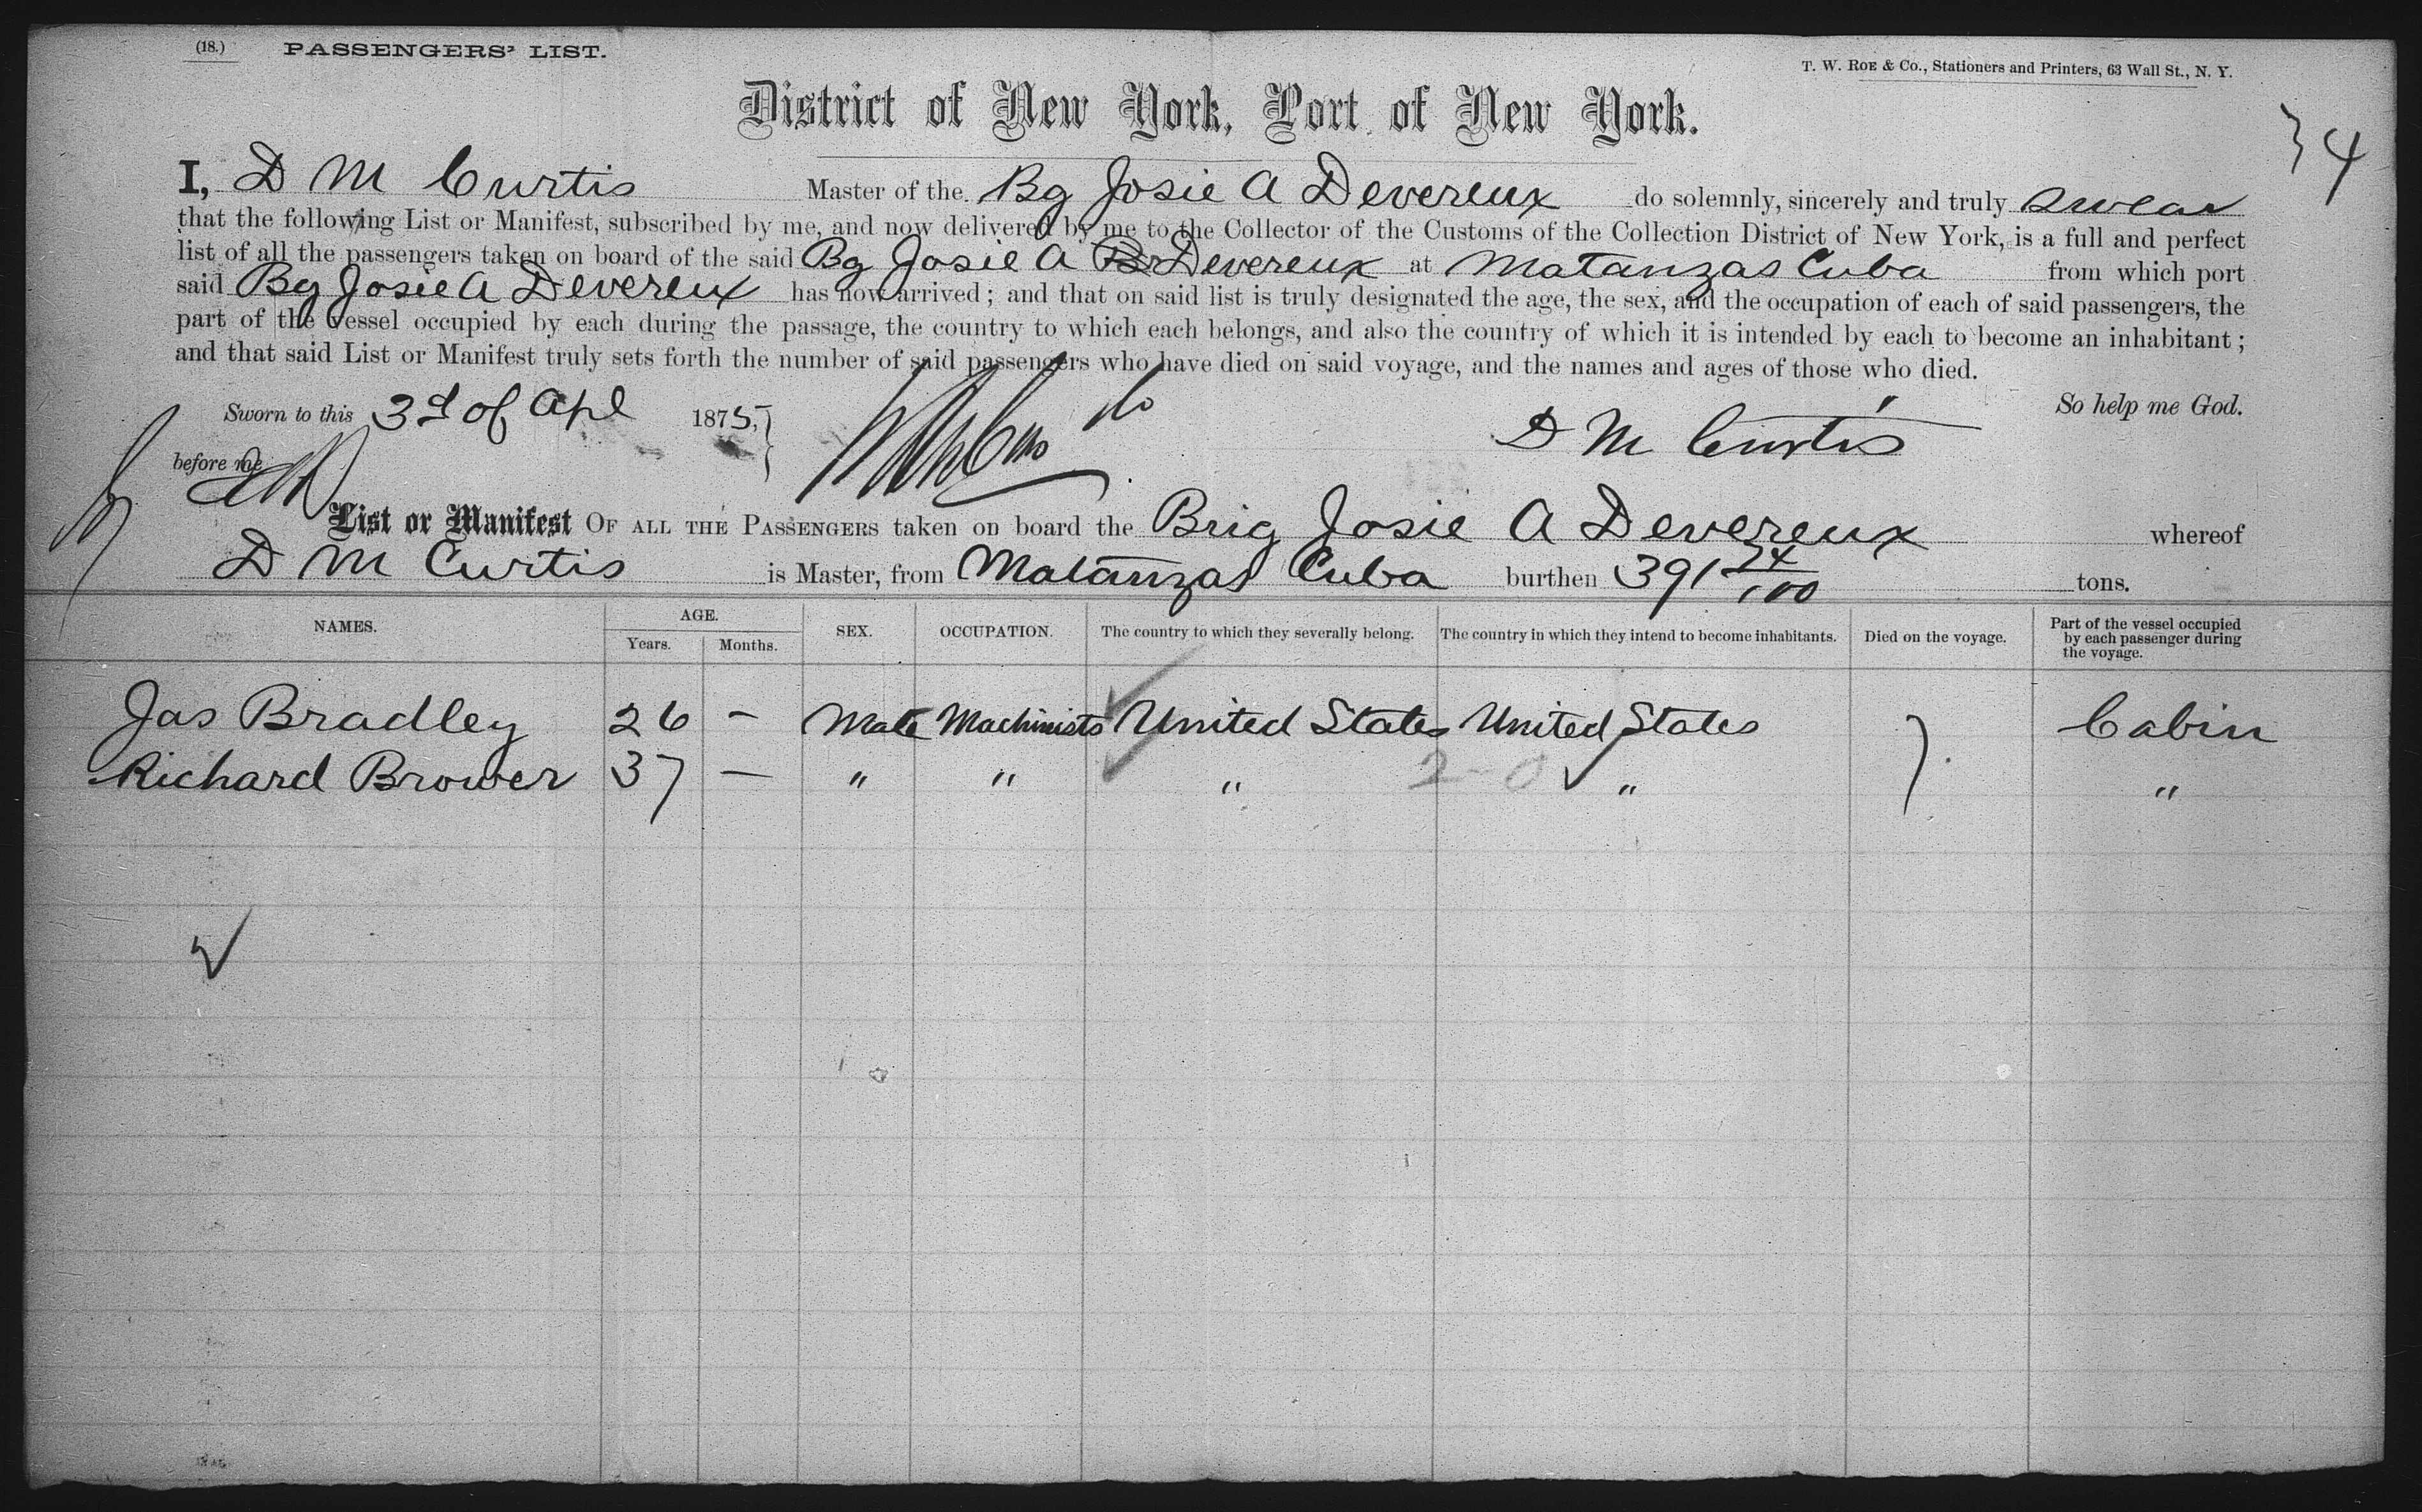 (18.) PASSENGERS' LIST.
T. W. ROE & Co., Stationers and Printers, 63 Wall St., N. Y.
District of New York, Port of New York.
4
I, D M Curtis Master of the Bg Josie A Devereux do solemnly, sincerely and truly swear
that the following List or Manifest, subscribed by me, and now delivered by me to the Collector of the Customs of the Collection District of New York, is a full and perfect
list of all the passengers taken on board of the said Bg Josie A Devereux at Matanzas Cuba from which port
said Bg Josie A Devereux has now arrived; and that on said list is truly designated the age, the sex, and the occupation of each of said passengers, the
part of the vessel occupied by each during the passage, the country to which each belongs, and also the country of which it is intended by each to become an inhabitant;
and that said List or Manifest truly sets forth the number of said passengers who have died on said voyage, and the names and ages of those who died.
So help me God.
Sworn to this 3d of Apl 1875,
D M Curtis
before me
List or Manifest OF ALL THE PASSENGERS taken on board the Brig Josie A Devereux whereof
D M Curtis is Master, from Matanzas Cuba burthen 391 24/100 tons.
NAMES. AGE. Years. Months. SEX. OCCUPATION. The country to which they severally belong. The country in which they intend to become inhabitants. Died on the voyage. Part of the vessel occupied by each passenger during the voyage.
Jas Bradley 26 – Male Machinists United States United States Cabin
Richard Brower 37 — " " " " "
2-0